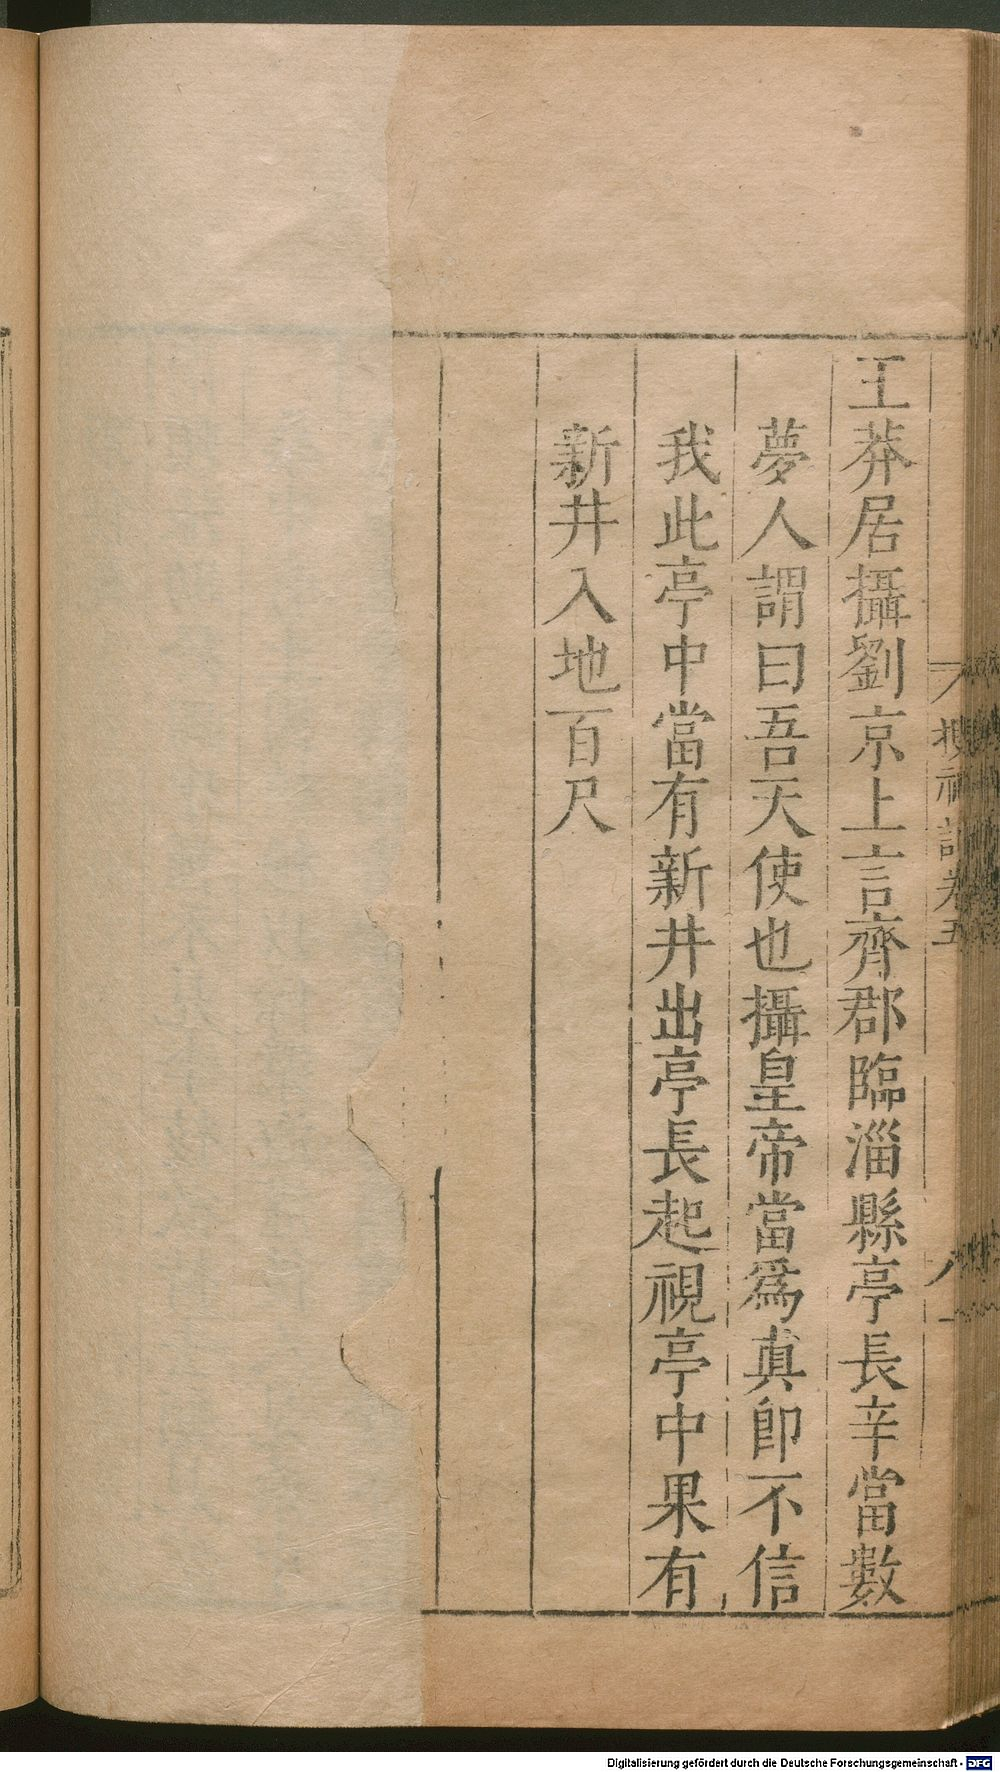 搜神記卷五
八
王莽居攝劉京上言齊郡臨淄縣亭長辛當數
夢人謂曰吾天使也攝皇帝當爲真卽不信
我此亭中當有新井出亭長起視亭中果有
新井入地百尺
Digitalisierung gefördert durch die Deutsche Forschungsgemeinschaft - DFG